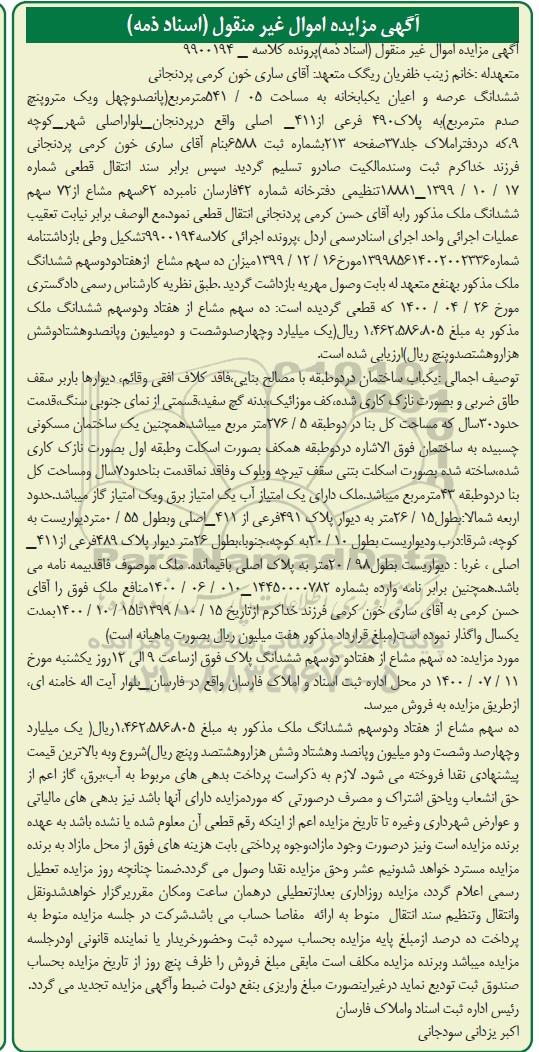 آگهی مزایده اموال غیر منقول (اسناد ذمه)
آگهی مزایده اموال غیر منقول (اسناد ذمه)پرونده کلاسه _ ۹۹۰۰۱۹۴
متعهدله :خانم زینب ظفریان ریگک متعهد: آقای ساری خون کرمی پردنجانی
ششدانگ عرصه و اعیان یکبابخانه به مساحت ۰۵ / ۵۴۱مترمربع(پانصدوچهل ویک متروپنج
صدم مترمربع)به پلاک۴۹۰ فرعی از۴۱۱_ اصلی واقع درپردنجان_بلواراصلی شهر_کوچه
۹،که دردفتراملاک جلد۳۷صفحه ۲۱۳بشماره ثبت ۶۵۸۸بنام آقای ساری خون کرمی پردنجانی
فرزند خداکرم ثبت وسندمالکیت صادرو تسلیم گردید سپس برابر سند انتقال قطعی شماره
۱۷ / ۱۰ / ۱۳۹۹_۱۸۸۸۱تنظیمی دفترخانه شماره ۴۲فارسان نامبرده ۶۲سهم مشاع از۷۲ سهم
ششدانگ ملک مذکور رابه آقای حسن کرمی پردنجانی انتقال قطعی نمود،مع الوصف برابر نیابت تعقیب
عملیات اجرائی واحد اجرای اسنادرسمی اردل ،پرونده اجرائی کلاسه۹۹۰۰۱۹۴تشکیل وطی بازداشتنامه
شماره۱۳۹۹۸۵۶۱۴۰۰۲۰۰۲۳۳۶مورخ۱۶ / ۱۲ / ۱۳۹۹میزان ده سهم مشاع ازهفتادودوسهم ششدانگ
ملک مذکور بهنفع متعهد له بابت وصول مهریه بازداشت گردید .طبق نظریه کارشناس رسمی دادگستری
مورخ ۲۶ / ۰۴ / ۱۴۰۰ که قطعی گردیده است: ده سهم مشاع از هفتاد ودوسهم ششدانگ ملک
مذکور به مبلغ ۱،۴۶۲،۵۸۶،۸۰۵ ریال(یک میلیارد وچهارصدوشصت و دومیلیون وپانصدوهشتادوشش
هزاروهشتصدوپنج ریال)ارزیابی شده است.
توصیف اجمالی :یکباب ساختمان دردوطبقه با مصالح بنایی،فاقد کلاف افقی وقائم، دیوارها باربر سقف
طاق ضربی و بصورت نازک کاری شده،کف موزائیک،بدنه گچ سفید،قسمتی از نمای جنوبی سنگ،قدمت
حدود۳۰سال که مساحت کل بنا در دوطبقه ۵ / ۲۷۶متر مربع میباشد.همچنین یک ساختمان مسکونی
چسبیده به ساختمان فوق الاشاره دردوطبقه همکف بصورت اسکلت وطبقه اول بصورت نازک کاری
شده،ساخته شده بصورت اسکلت بتنی سقف تیرچه وبلوک وفاقد نماقدمت بناحدود۷سال ومساحت کل
بنا دردوطبقه ۴۳مترمربع میباشد.ملک دارای یک امتیاز آب یک امتیاز برق ویک امتیاز گاز میباشد.حدود
اربعه شمالا:بطول۱۵ / ۲۶متر به دیوار پلاک ۴۹۱فرعی از ۴۱۱_اصلی وبطول ۵۵ / ۰متردیواریست به
کوچه، شرقا:درب ودیواریست بطول ۱۰ / ۲۰به کوچه،جنوبا،بطول ۲۶متر دیوار پلاک ۴۸۹فرعی از۴۱۱_
اصلی ، غربا : دیواریست بطول۹۸ / ۲۰متر به پلاک اصلی باقیمانده. ملک موصوف فاقدبیمه نامه می
باشد.همچنین برابر نامه وارده بشماره ۱۴۴۵۰۰۰۰۷۸۲_۰۱۰ / ۰۶ / ۱۴۰۰منافع ملک فوق را آقای
حسن کرمی به آقای ساری خون کرمی فرزند خداکرم ازتاریخ ۱۵ / ۱۰ / ۱۳۹۹تا۱۵ / ۱۰ / ۱۴۰۰بمدت
یکسال واگذار نموده است(مبلغ قرارداد مذکور هفت میلیون ریال بصورت ماهیانه است)
مورد مزایده: ده سهم مشاع از هفتادو دوسهم ششدانگ پلاک فوق ازساعت ۹ الی ۱۲روز یکشنبه مورخ
۱۱ / ۰۷ / ۱۴۰۰ در محل اداره ثبت اسناد و املاک فارسان واقع در فارسان_بلوار آیت اله خامنه ای،
ازطریق مزایده به فروش میرسد.
ده سهم مشاع از هفتاد ودوسهم ششدانگ ملک مذکور به مبلغ ۱،۴۶۲،۵۸۶،۸۰۵ریال( یک میلیارد
وچهارصد وشصت ودو میلیون وپانصد وهشتاد وشش هزاروهشتصد وپنج ریال)شروع وبه بالاترین قیمت
پیشنهادی نقدا فروخته می شود. لازم به ذکراست پرداخت بدهی های مربوط به آب،برق، گاز اعم از
حق انشعاب ویاحق اشتراک و مصرف درصورتی که موردمزایده دارای آنها باشد نیز بدهی های مالیاتی
و عوارض شهرداری وغیره تا تاریخ مزایده اعم از اینکه رقم قطعی آن معلوم شده یا نشده باشد به عهده
برنده مزایده است ونیز درصورت وجود مازاد،وجوه پرداختی بابت هزینه های فوق از محل مازاد به برنده
مزایده مسترد خواهد شدونیم عشر وحق مزایده نقدا وصول می گردد.ضمنا چنانچه روز مزایده تعطیل
رسمی اعلام گردد، مزایده روزاداری بعدازتعطیلی درهمان ساعت ومکان مقرربرگزار خواهدشدونقل
وانتقال وتنظیم سند انتقال منوط به ارائه مفاصا حساب می باشد.شرکت در جلسه مزایده منوط به
پرداخت ده درصد ازمبلغ پایه مزایده بحساب سپرده ثبت وحضورخریدار یا نماینده قانونی اودرجلسه
مزایده میباشد وبرنده مزایده مکلف است مابقی مبلغ فروش را ظرف پنج روز از تاریخ مزایده بحساب
صندوق ثبت تودیع نماید درغیراینصورت مبلغ واریزی بنفع دولت ضبط وآگهی مزایده تجدید می گردد.
رئیس اداره ثبت اسناد واملاک فارسان
اکبر یزدانی سودجانی